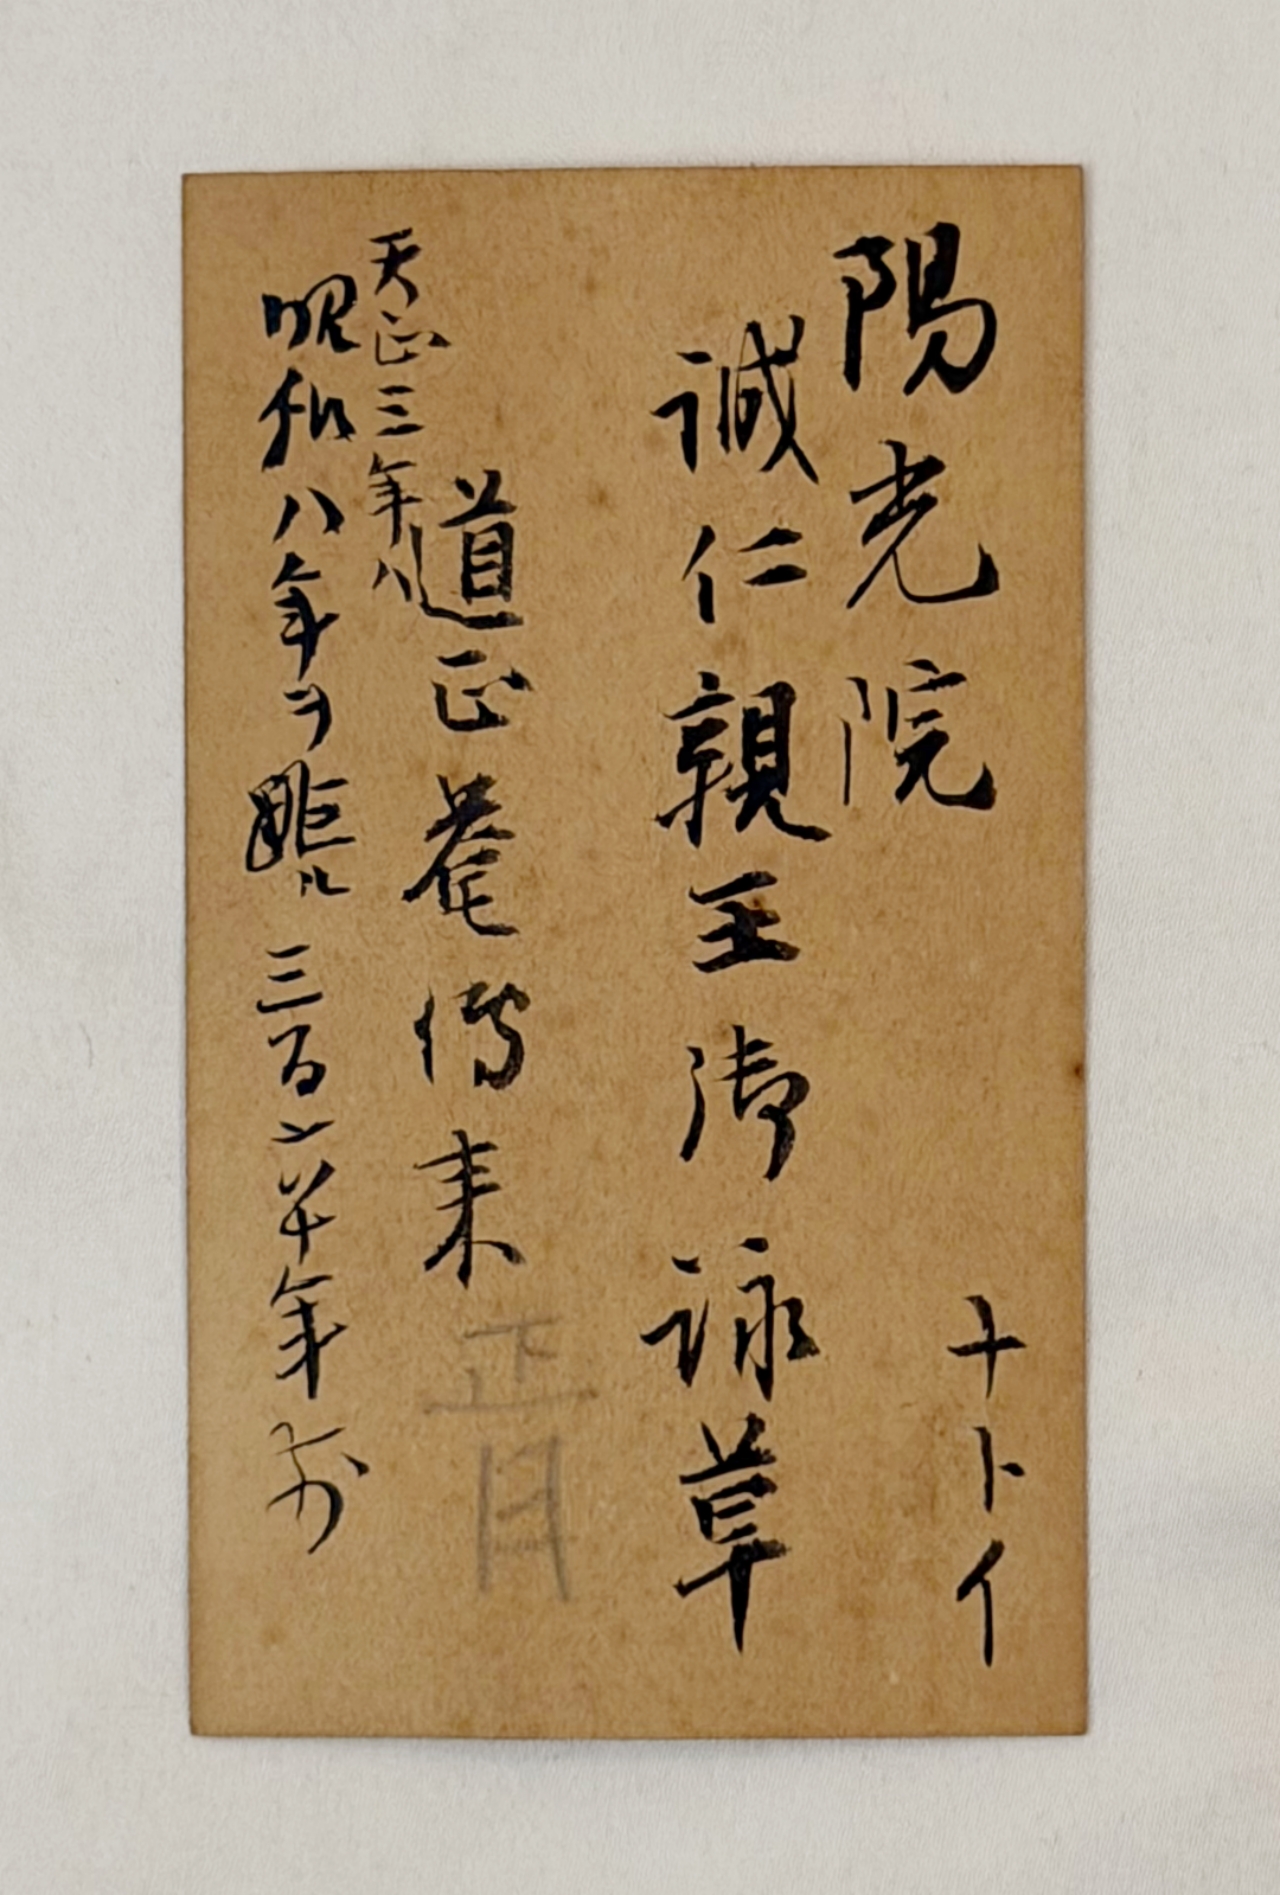 陽光院
ナトイ
誠仁親王御詠草
道正菴傳来
正月
天正三年ハ
昭和八年ヲ距ル三百六十年前